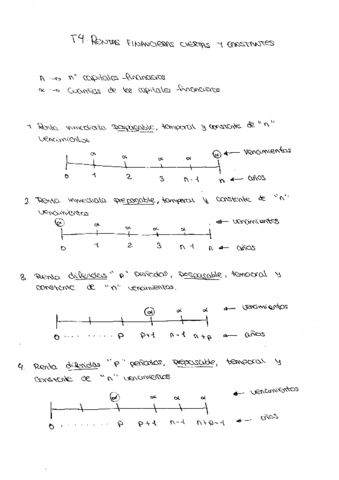 T4: RENTAS FINANCIERAS CIERTAS Y CONSTANTES
n → nº capitales financieros
α → Cuantías de los capitales financieros
1. Renta inmediata pospagable, temporal y constante de "n"
vencimientos
α α α α α ← vencimientos
0 1 2 3 n-1 n ← años
2. Renta inmediata prepagable, temporal y constante de "n"
vencimientos
α α α α α ← vencimientos
0 1 2 3 n-1 n ← años
3. Renta diferida "p" periodos, pospagable, temporal y
constante de "n" vencimientos.
α α α ← vencimientos
0 ........ p p+1 n-1 n+p ← años
4. Renta diferida "p" periodos, prepagable, temporal y
constante de "n" vencimientos
α α α α ← vencimientos
0 ........ p p+1 n-1 n+p-1 ← años